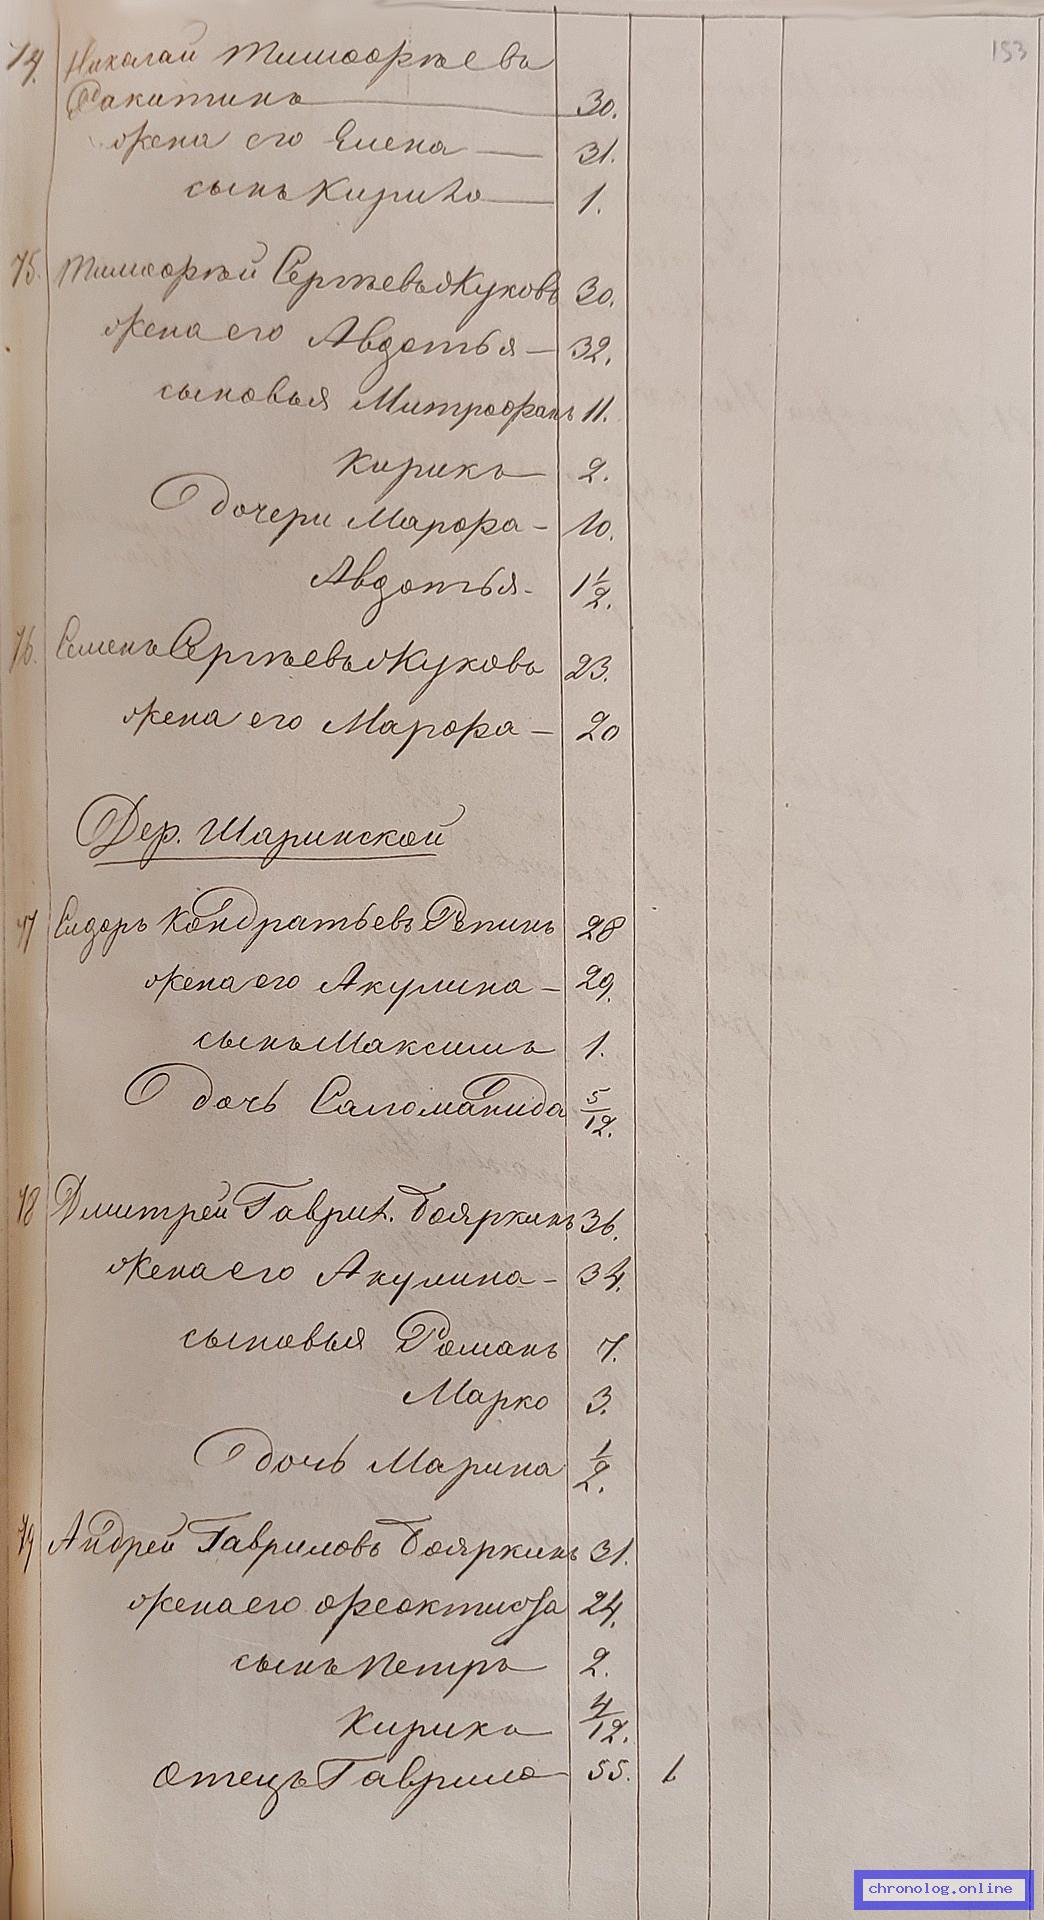 153
74. Николай Тимоѳѣевъ
Ракитинъ 30.
жена его Елена — 31.
сынъ Кирикъ — 1.
75. Тимоѳѣй Сергѣевъ Жуковъ 30.
жена его Авдотья — 32.
сыновья Митрофанъ 11.
Кирикъ 2.
дочери Марфа - 10.
Авдотья - 1 1/2.
76. Семенъ Сергѣевъ Жуковъ 23.
жена его Марфа — 20
Дер. Шаринской
77 Сидоръ Кондратьевъ Рѣпинъ 28
жена его Акулина — 29.
сынъ Максимъ 1.
дочь Саломанида 5/12.
78 Дмитрей Гаврил. Бояркинъ 36.
жена его Акулина — 34.
сыновья Романъ 7.
Марко 3.
дочь Марина 1/2.
79 Андрей Гавриловъ Бояркинъ 31.
жена его Феоктиста 24.
сынъ Петръ 2.
Кирикъ 4/12.
отецъ Гаврило 55. 1
chronolog.online